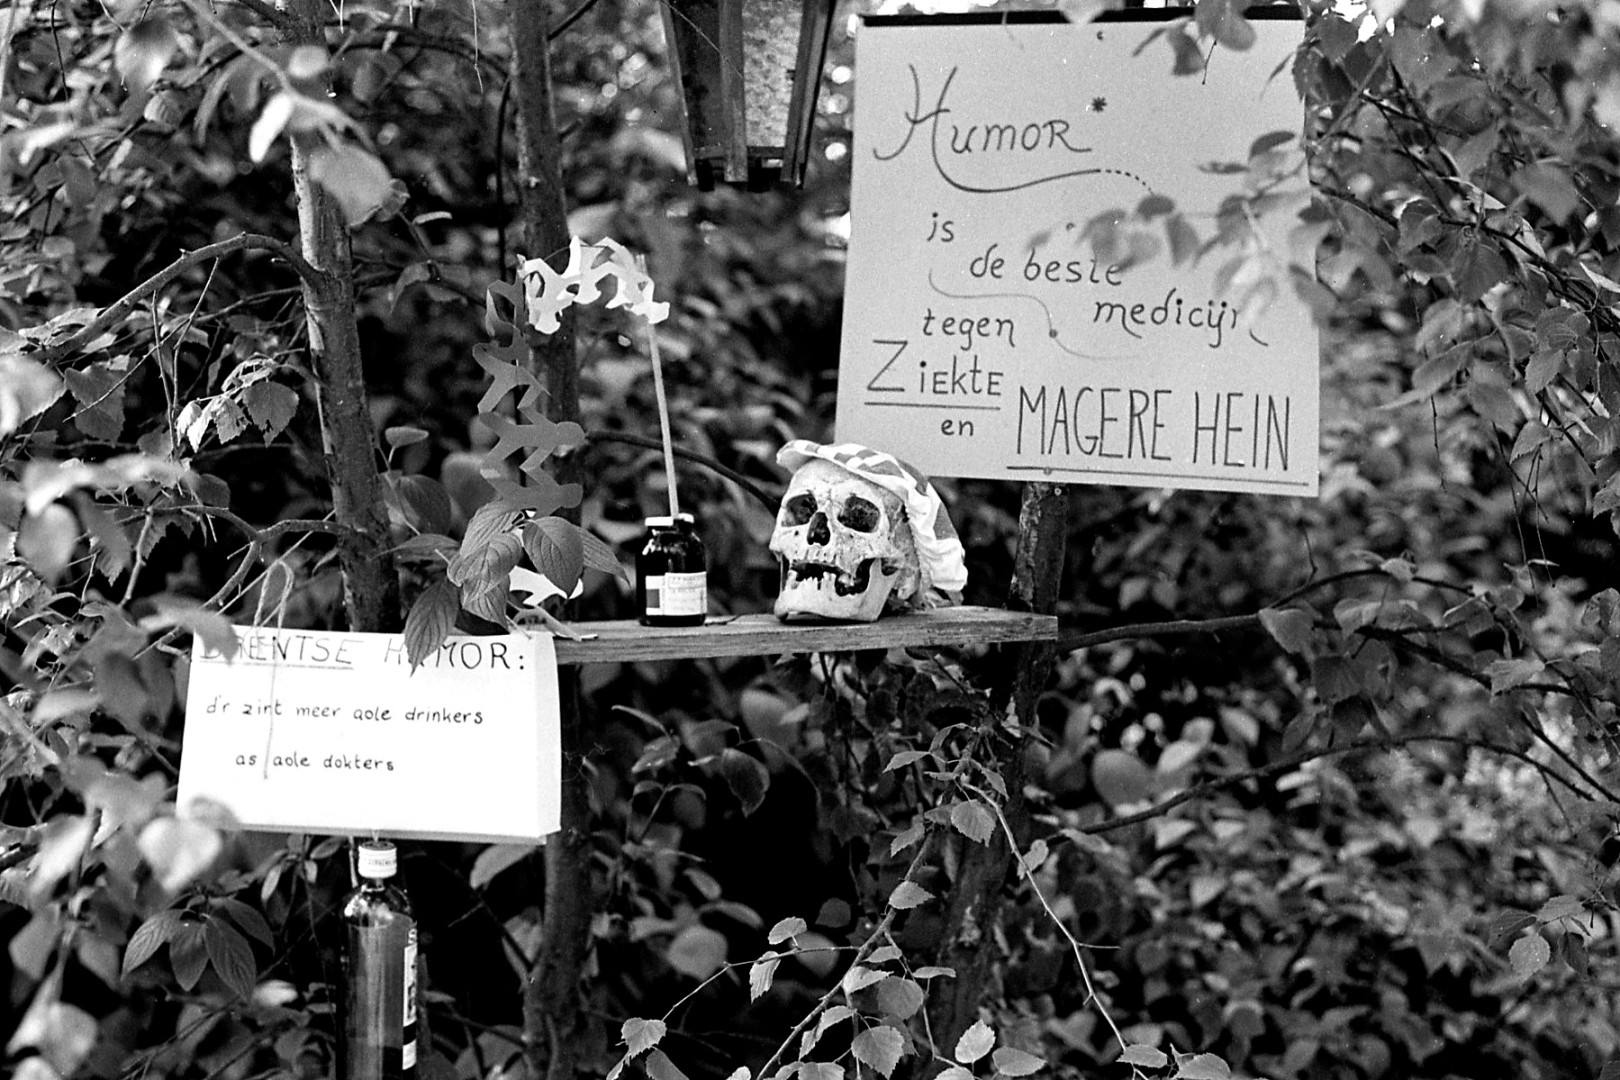 Humor
is
de beste
medicijn
tegen
Ziekte
en MAGERE HEIN
DRENTSE HUMOR:
d'r zint meer aole drinkers
as aole dokters